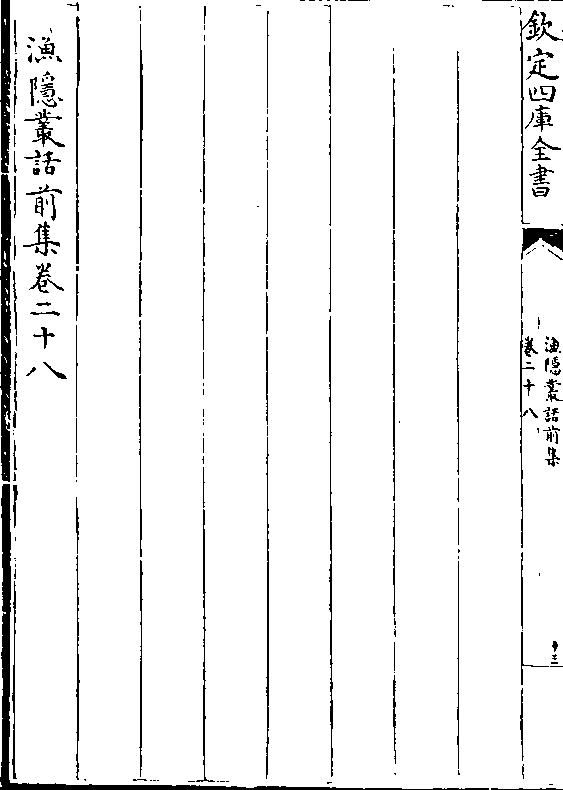 欽定四庫全書
漁隱叢話前集
卷二十八
十三
漁隱叢話前集卷二十八